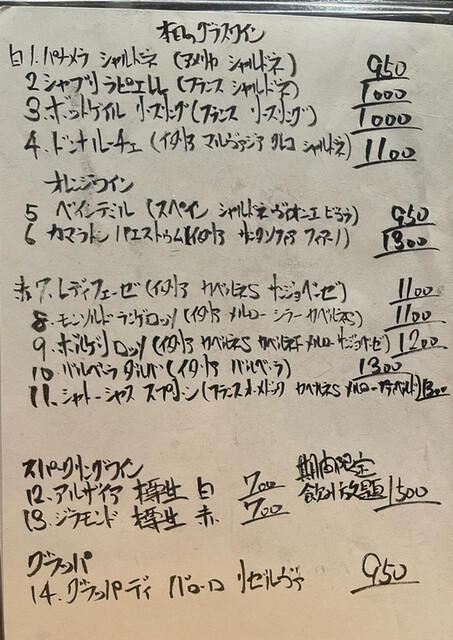 本日のグラスワイン
白1.パナメラ シャルドネ (アメリカ シャルドネ) 950
2 シャブリ ラピエレレ (フランス シャルドネ) 1000
3.ホットケイル リースリング(フランス リースリング) 1000
4.ドンナルーチェ (イタリア マルヴァジア シャルドネ) 1100
オレンジワイン
5 ベインテミル (スペイン シャルドネ ヴィオニエ ビウラ) 950
6 カマラトン パエストゥム(イタリア フィアーノ) 1300
赤7.レディフェーゼ(イタリア カベルネS サンジョベーゼ) 1100
8.モンソルド ランゲロッソ (イタリア メルロー シラー カベルネS) 1100
9 ボルゲリ ロッソ (イタリア カベルネS カベルネF メルロー サンジョベーゼ) 1200
10.バルベラ ダルバ(イタリア バルベラ) 1300
11.シャトーシャス スプリーン(フランス オーメドック カベルネS メルロー プティベルド) 1300
スパークリングワイン
12.アルザイア 樽生 白 700
13.ジラモンド 樽生 赤 700
期間限定
飲み放題 1500
グラッパ
14.グラッパ ディ バローロ リゼルヴァ 950